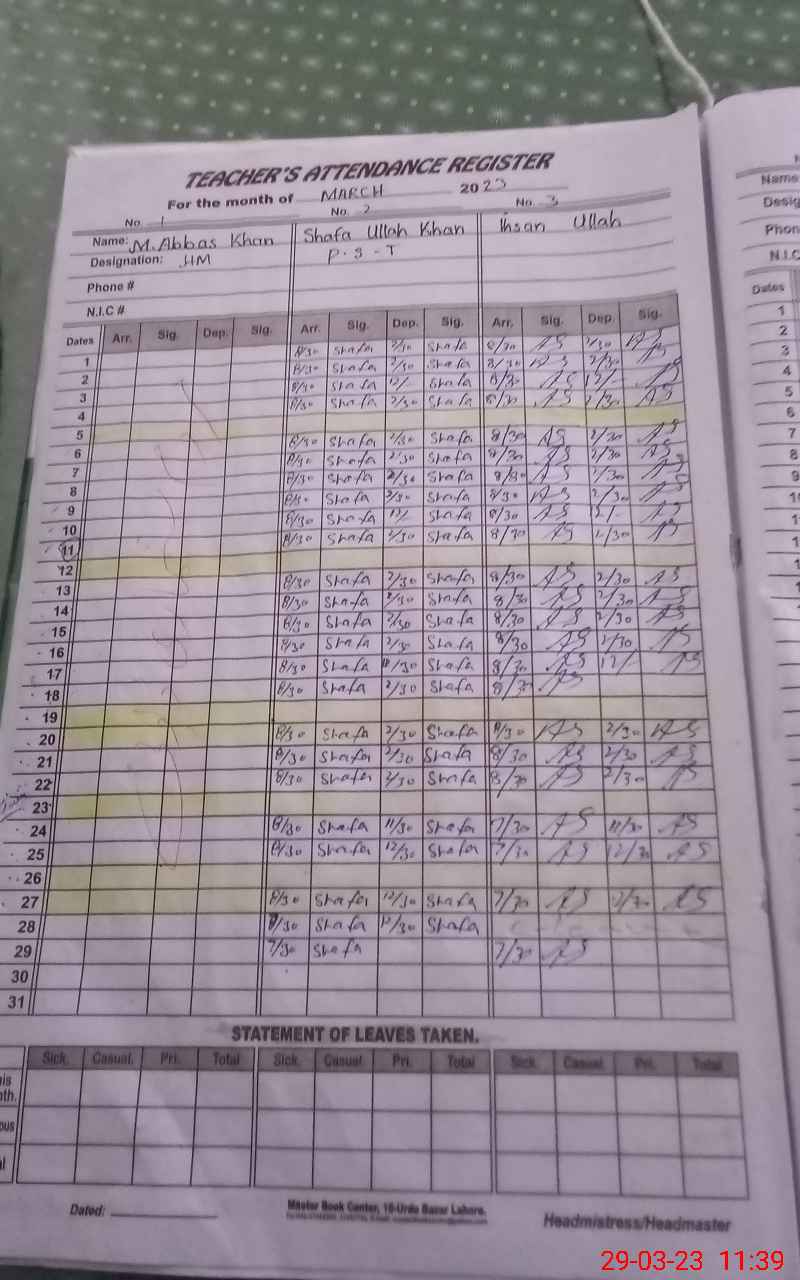 TEACHER'S ATTENDANCE REGISTER
For the month of MARCH 2023
No. 1 No. 2 No. 3
Name: M. Abbas Khan Shafa Ullah Khan Ihsan Ullah
Designation: HM P.S-T
Phone #
N.I.C #
Dates Arr. Sig. Dep. Sig. Arr. Sig. Dep. Sig. Arr. Sig. Dep. Sig.
1 8/30 Shafa 2/30 Shafa 8/30 AS 2/30 AS
2 8/30 Shafa 2/30 Shafa 8/30 AS 2/30 AS
3 8/30 Shafa 12/- Shafa 8/30 AS 12/- AS
4 8/30 Shafa 2/30 Shafa 8/30 AS 2/30 AS
5
6 8/30 Shafa 2/30 Shafa 8/30 AS 2/30 AS
7 8/30 Shafa 2/30 Shafa 8/30 AS 2/30 AS
8 8/30 Shafa 2/30 Shafa 8/30 AS 2/30 AS
9 8/30 Shafa 2/30 Shafa 8/30 AS 2/30 AS
10 8/30 Shafa 12/- Shafa 8/30 AS 12/- AS
11 8/30 Shafa 2/30 Shafa 8/30 AS 2/30 AS
12
13 8/30 Shafa 2/30 Shafa 8/30 AS 2/30 AS
14 8/30 Shafa 2/30 Shafa 8/30 AS 2/30 AS
15 8/30 Shafa 2/30 Shafa 8/30 AS 2/30 AS
16 8/30 Shafa 2/30 Shafa 8/30 AS 2/30 AS
17 8/30 Shafa /30 Shafa 8/30 AS 12/- AS
18 8/30 Shafa 2/30 Shafa 8/30 AS
19
20 8/30 Shafa 2/30 Shafa 8/30 AS 2/30 AS
21 8/30 Shafa 2/30 Shafa 8/30 AS 2/30 AS
22 8/30 Shafa 2/30 Shafa 8/30 AS 2/30 AS
23
24 8/30 Shafa 11/30 Shafa 7/30 AS 11/30 AS
25 8/30 Shafa 12/30 Shafa 7/30 AS 12/30 AS
26
27 8/30 Shafa 12/30 Shafa 7/30 AS 12/30 AS
28 8/30 Shafa 12/30 Shafa
29 7/30 Shafa 7/30 AS
30
31
STATEMENT OF LEAVES TAKEN.
Sick. Casual. Pri. Total Sick. Casual. Pri. Total Sick. Casual. Pri. Total
Dated:
Master Book Center, 16-Urdu Bazar Lahore.
Headmistress/Headmaster
Name
Desig
Phon
N.I.C
Dates
1
2
3
4
5
6
7
8
9
10
29-03-23 11:39